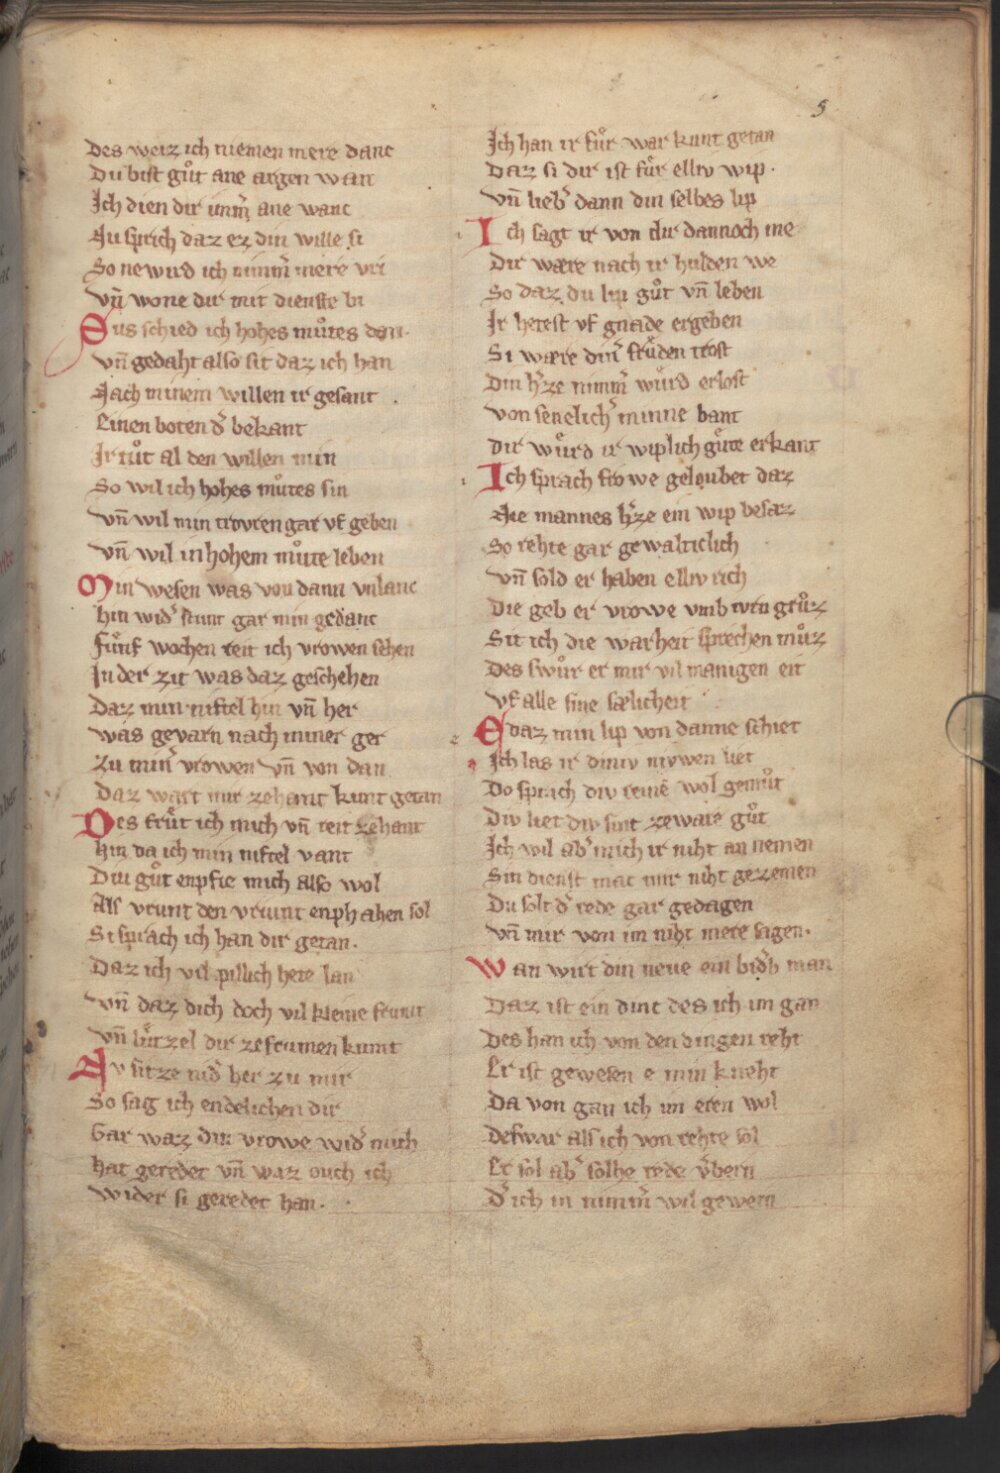 5
Des weiz ich niemen mere danc
Du bist gůt ane argen wan
Ich dien dir imm̄ ane wanc
Nu sprich daz ez din wille si
So ne wird ich nimm̄ mere vri
Vn̄ wone dir mit dienste bi
Sus schied ich hohes můtes dan.
Vn̄ gedaht also sit daz ich han
Nach minem willen ir gesant
Einen boten d͛ bekant
Ir tůt al den willen min
So wil ich hohes můtes sin
Vn̄ wil min trovren gar vf geben
Vn̄ wil in hohem můte leben
Min wesen was von dann vnlanc
hin wid͛ stunt gar min gedanc
Fu͛nf wochen reit ich vrowen sehen
In der zit was daz geschehen
Daz min niftel hin vn̄ her
was gevarn nach miner ger
Zu min͛ vrowen vn̄ von dan
Daz wart mir zehant kunt getan
Des frůt ich mich vn̄ reit zehant
hin da ich min niftel vant
Diu gůt enpfie mich also wol
Als vrunt den vriunt enphahen sol
Si sprach ich han dir getan.
Daz ich vil pillich hete lan
Vn̄ daz dich doch vil kleine frumt
Vn̄ lůtzel dir ze frumen kumt
Nv sitze nid͛ her zu mir
So sag ich endelichen dir
Gar waz din vrowe wid͛ mich
hat geredet vn̄ waz ouch ich
Wider si geredet han.
Ich han ir fůr war kunt getan
Daz si dir ist fůr elliv wip.
Vn̄ lieb͛ dann din selbes lip
Ich sagt ir von dir dannoch me
Dir wære nach ir hulden we
So daz du lip gůt vn̄ leben
Ir hetest vf gnade ergeben
Si wære din͛ frůden trost
Din h͛ze nimm̄ wůrd erlost
Von senelich͛ minne bant
Dir wůrd ir wiplich gůte erkant
Ich sprach frowe geloubet daz
Nie mannes h͛ze ein wip besaz
So rehte gar gewalticlich
Vn̄ sold er haben elliv rich
Die geb er vrowe vmb ivrn grůz
Sit ich die warheit sprechen můz
Des swůr er mir vil manigen eit
Vf alle sine sælicheit
E daz min lip von danne schiet
Ich las ir diniv nivwen liet
Do sprach div reine wol gemůt
Div liet div sint zeware gůt
Ich wil ab͛ mich ir niht an nemen
Sin dienst mac mir niht gezemen
Du solt d͛ rede gar gedagen
Vn̄ mir von im niht mere sagen.
Wan wirt din neve ein bid͛b man
Daz ist ein dinc des ich im gan
Des han ich von den dingen reht
Er ist gewesen e min kneht
Da von gan ich im eren wol
Deswar als ich von rehte sol
Er sol ab͛ solhe rede v͛bern
D͛ ich in nimm̄ wil gewern